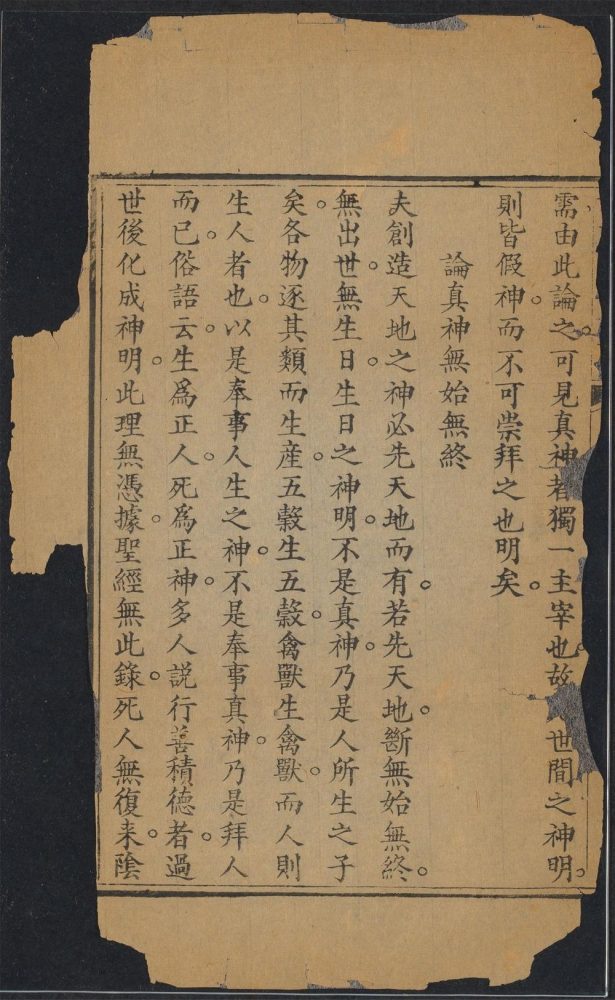 需由此論之。可見真神者獨一主宰也。故世間之神明。
則皆假神。而不可崇拜之也明矣。
論真神無始無終
夫創造天地之神必先天地而有。若先天地。斷無始無終。
無出世。無生日。生日之神明。不是真神。乃是人所生之子
矣。各物逐其類而生產。五穀生五穀。禽獸生禽獸。而人則
生人者也。以是奉事人生之神。不是奉事真神。乃是拜人
而已。俗語云。生爲正人。死爲正神。多人説行善積德者。過
世後化成神明。此理無憑據。聖經無此錄。死人無復来。陰